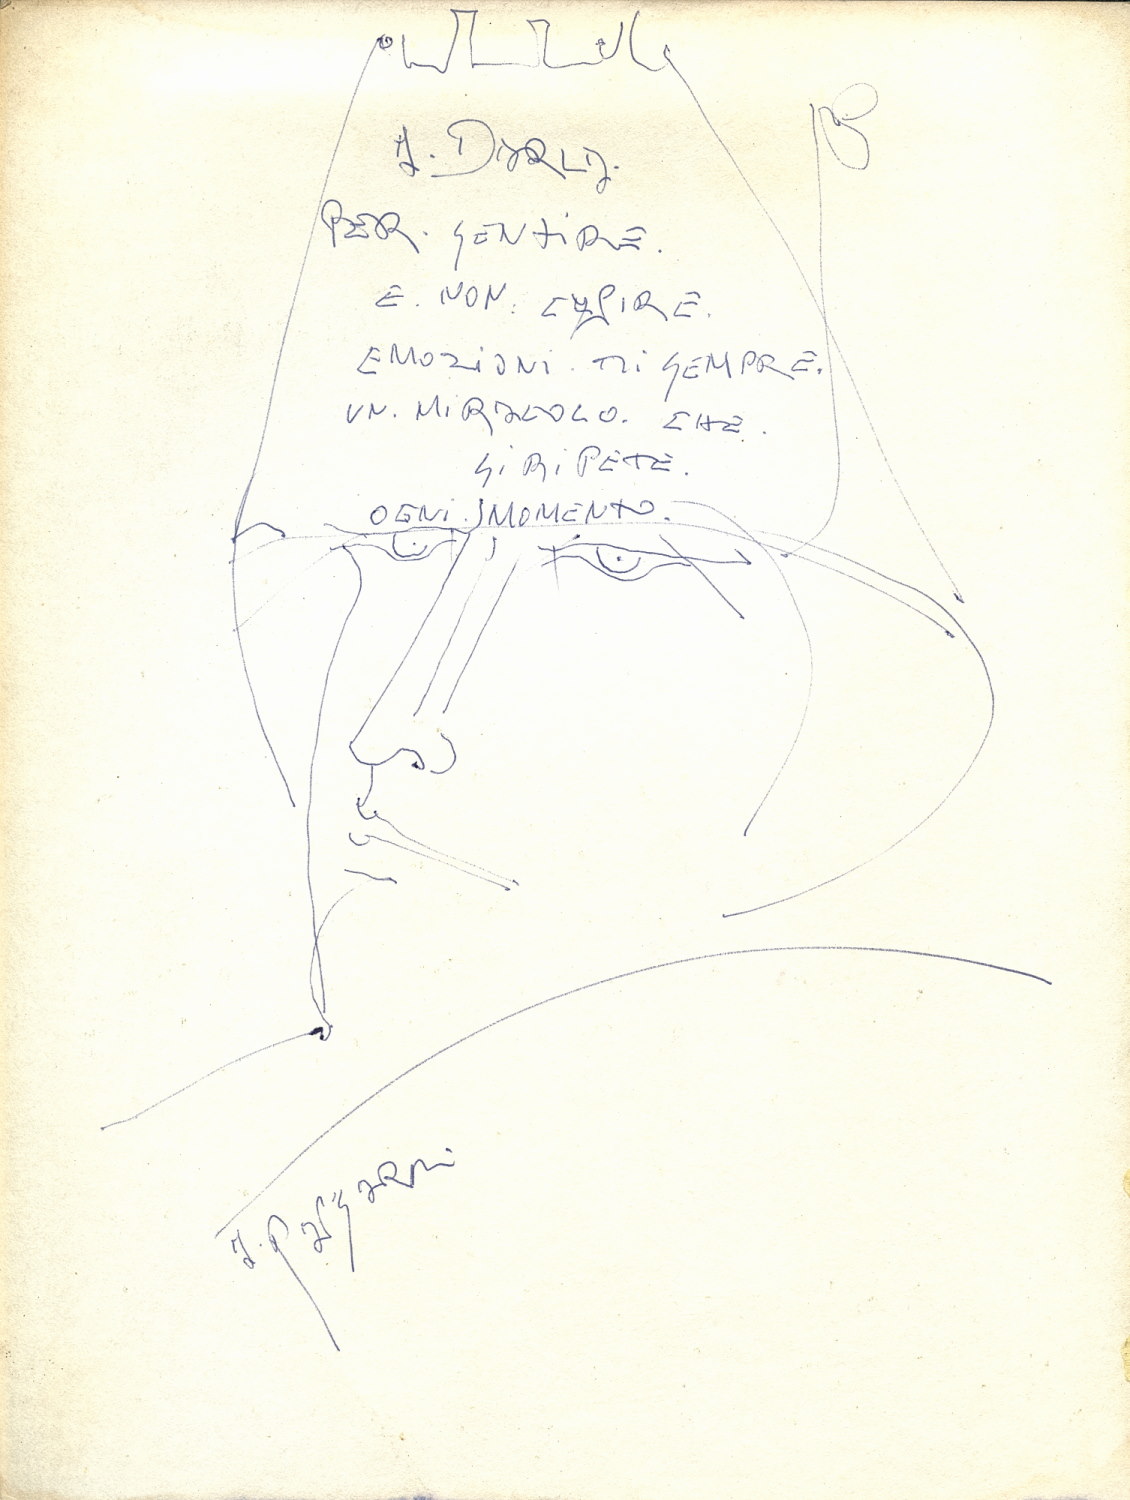 A. DARIA.
PER. SENTIRE.
E. NON. CAPIRE.
EMOZIONI. DI SEMPRE.
UN. MIRACOLO. CHE.
SI RIPETE.
OGNI. MOMENTO.